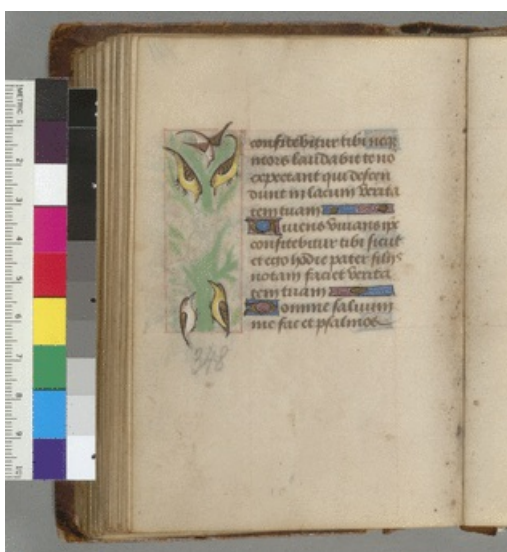 confitebitur tibi neqz
mors laudabit te no
expectant qui descen
dunt in lacum verita
tem tuam
Vivens vivens ipse
confitebitur tibi sicut
et ego hodie pater filijs
notam faciet verita
tem tuam
Domine salvum
me fac et psalmos
348
METRIC 1
2
3
4
5
6
7
8
9
10